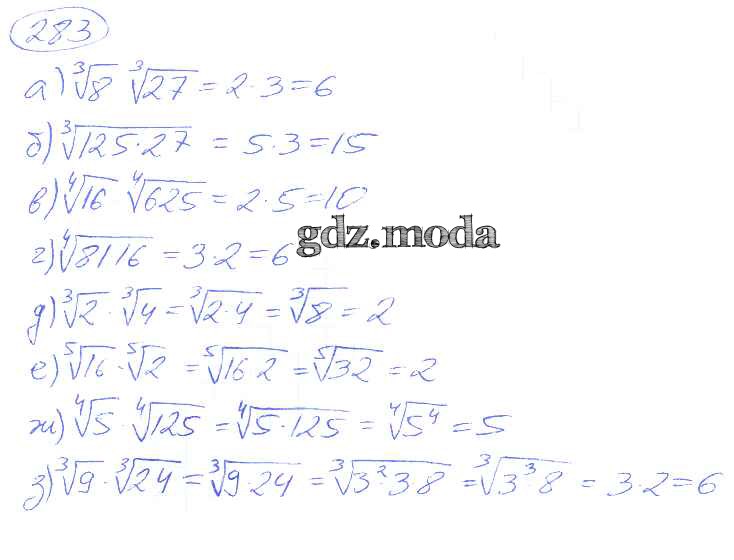 283
а) ∛8 ∛27 = 2·3 = 6
б) ∛125·27 = 5·3 = 15
в) ∜16 ∜625 = 2·5 = 10
г) ∜81 16 = 3·2 = 6
gdz.moda
д) ∛2 · ∛4 = ∛2·4 = ∛8 = 2
е) ⁵√16 · ⁵√2 = ⁵√16 2 = ⁵√32 = 2
ж) ∜5 · ∜125 = ∜5·125 = ∜5⁴ = 5
з) ∛9 · ∛24 = ∛9·24 = ∛3²·3 8 = ∛3³ 8 = 3·2 = 6